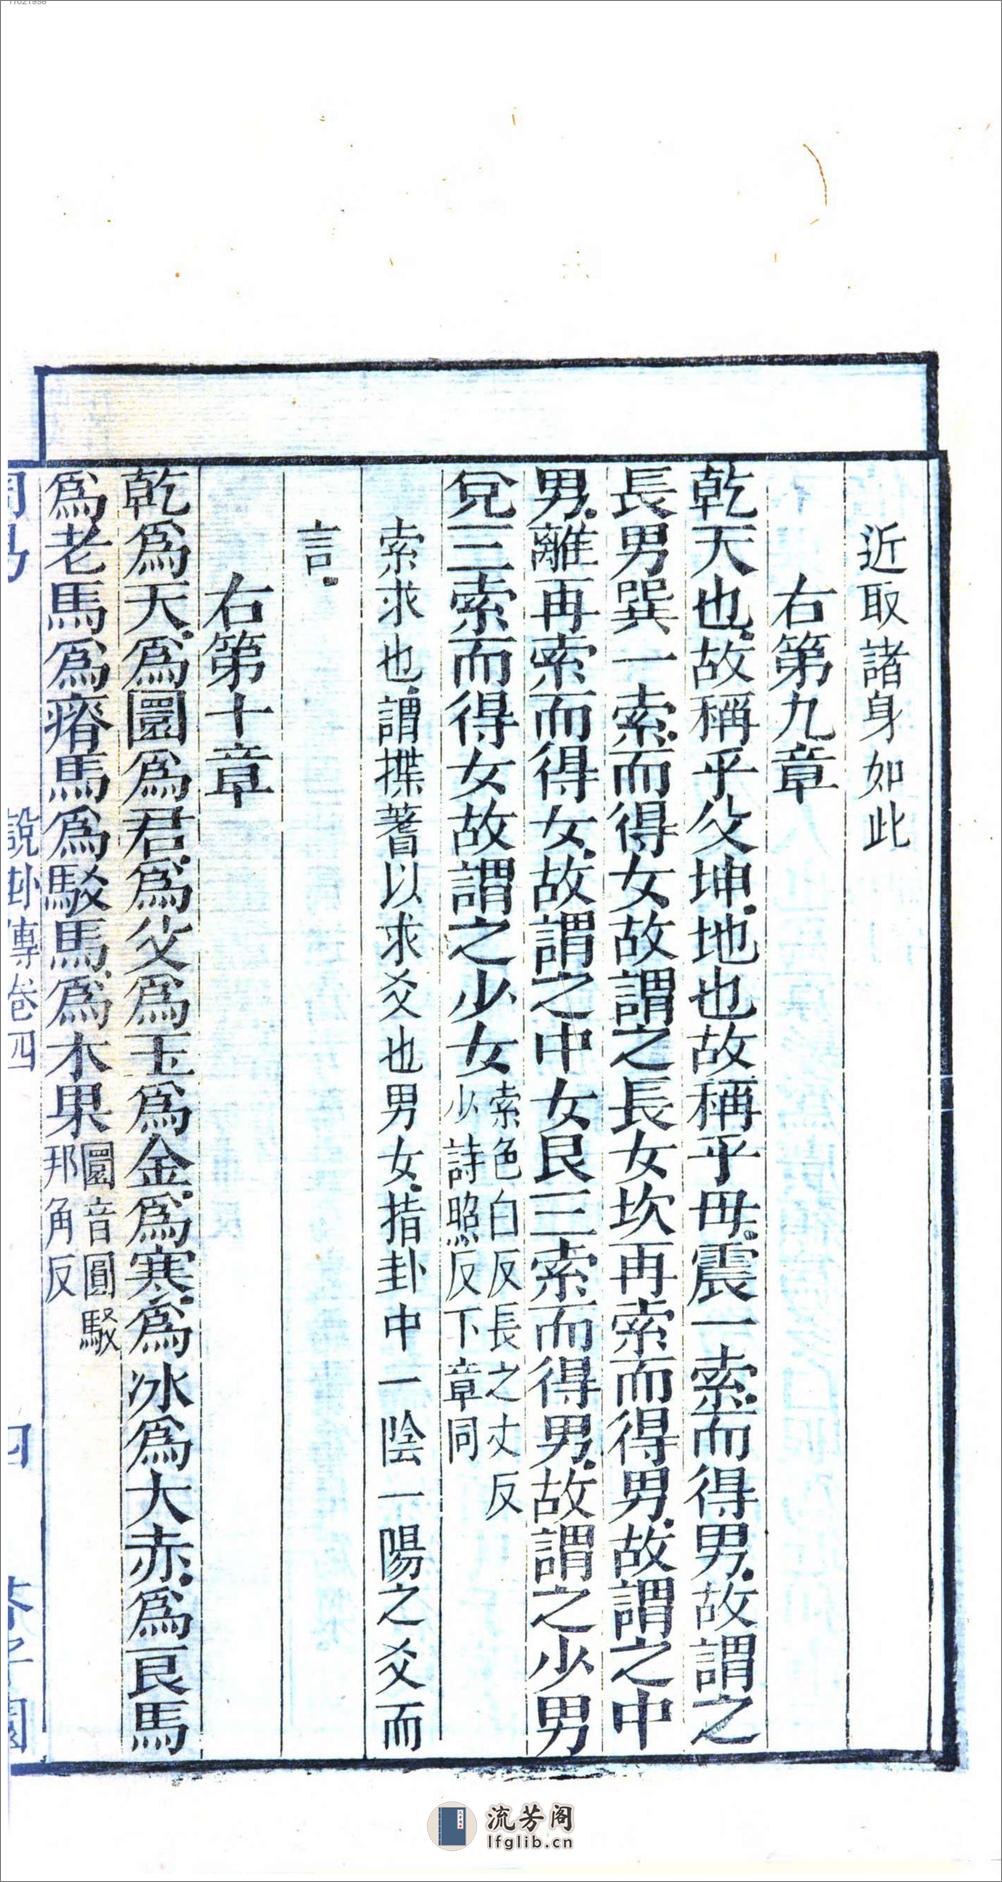 近取諸身如此
右第九章
乾天也故稱乎父坤地也故稱乎母震一索而得男故謂之
長男巽一索而得女故謂之長女坎再索而得男故謂之中
男離再索而得女故謂之中女艮三索而得男故謂之少男
兌三索而得女故謂之少女
索色白反長之丈反
少詩照反下章同
索求也謂揲蓍以求爻也男女指卦中一陰一陽之爻而
言
右第十章
乾爲天爲圜爲君爲父爲玉爲金爲寒爲冰爲大赤爲良馬
爲老馬爲瘠馬爲駁馬爲木果
圜音圓駁
邦角反
周易 說卦傳卷四 四 芥子園
流芳阁
lfglib.cn